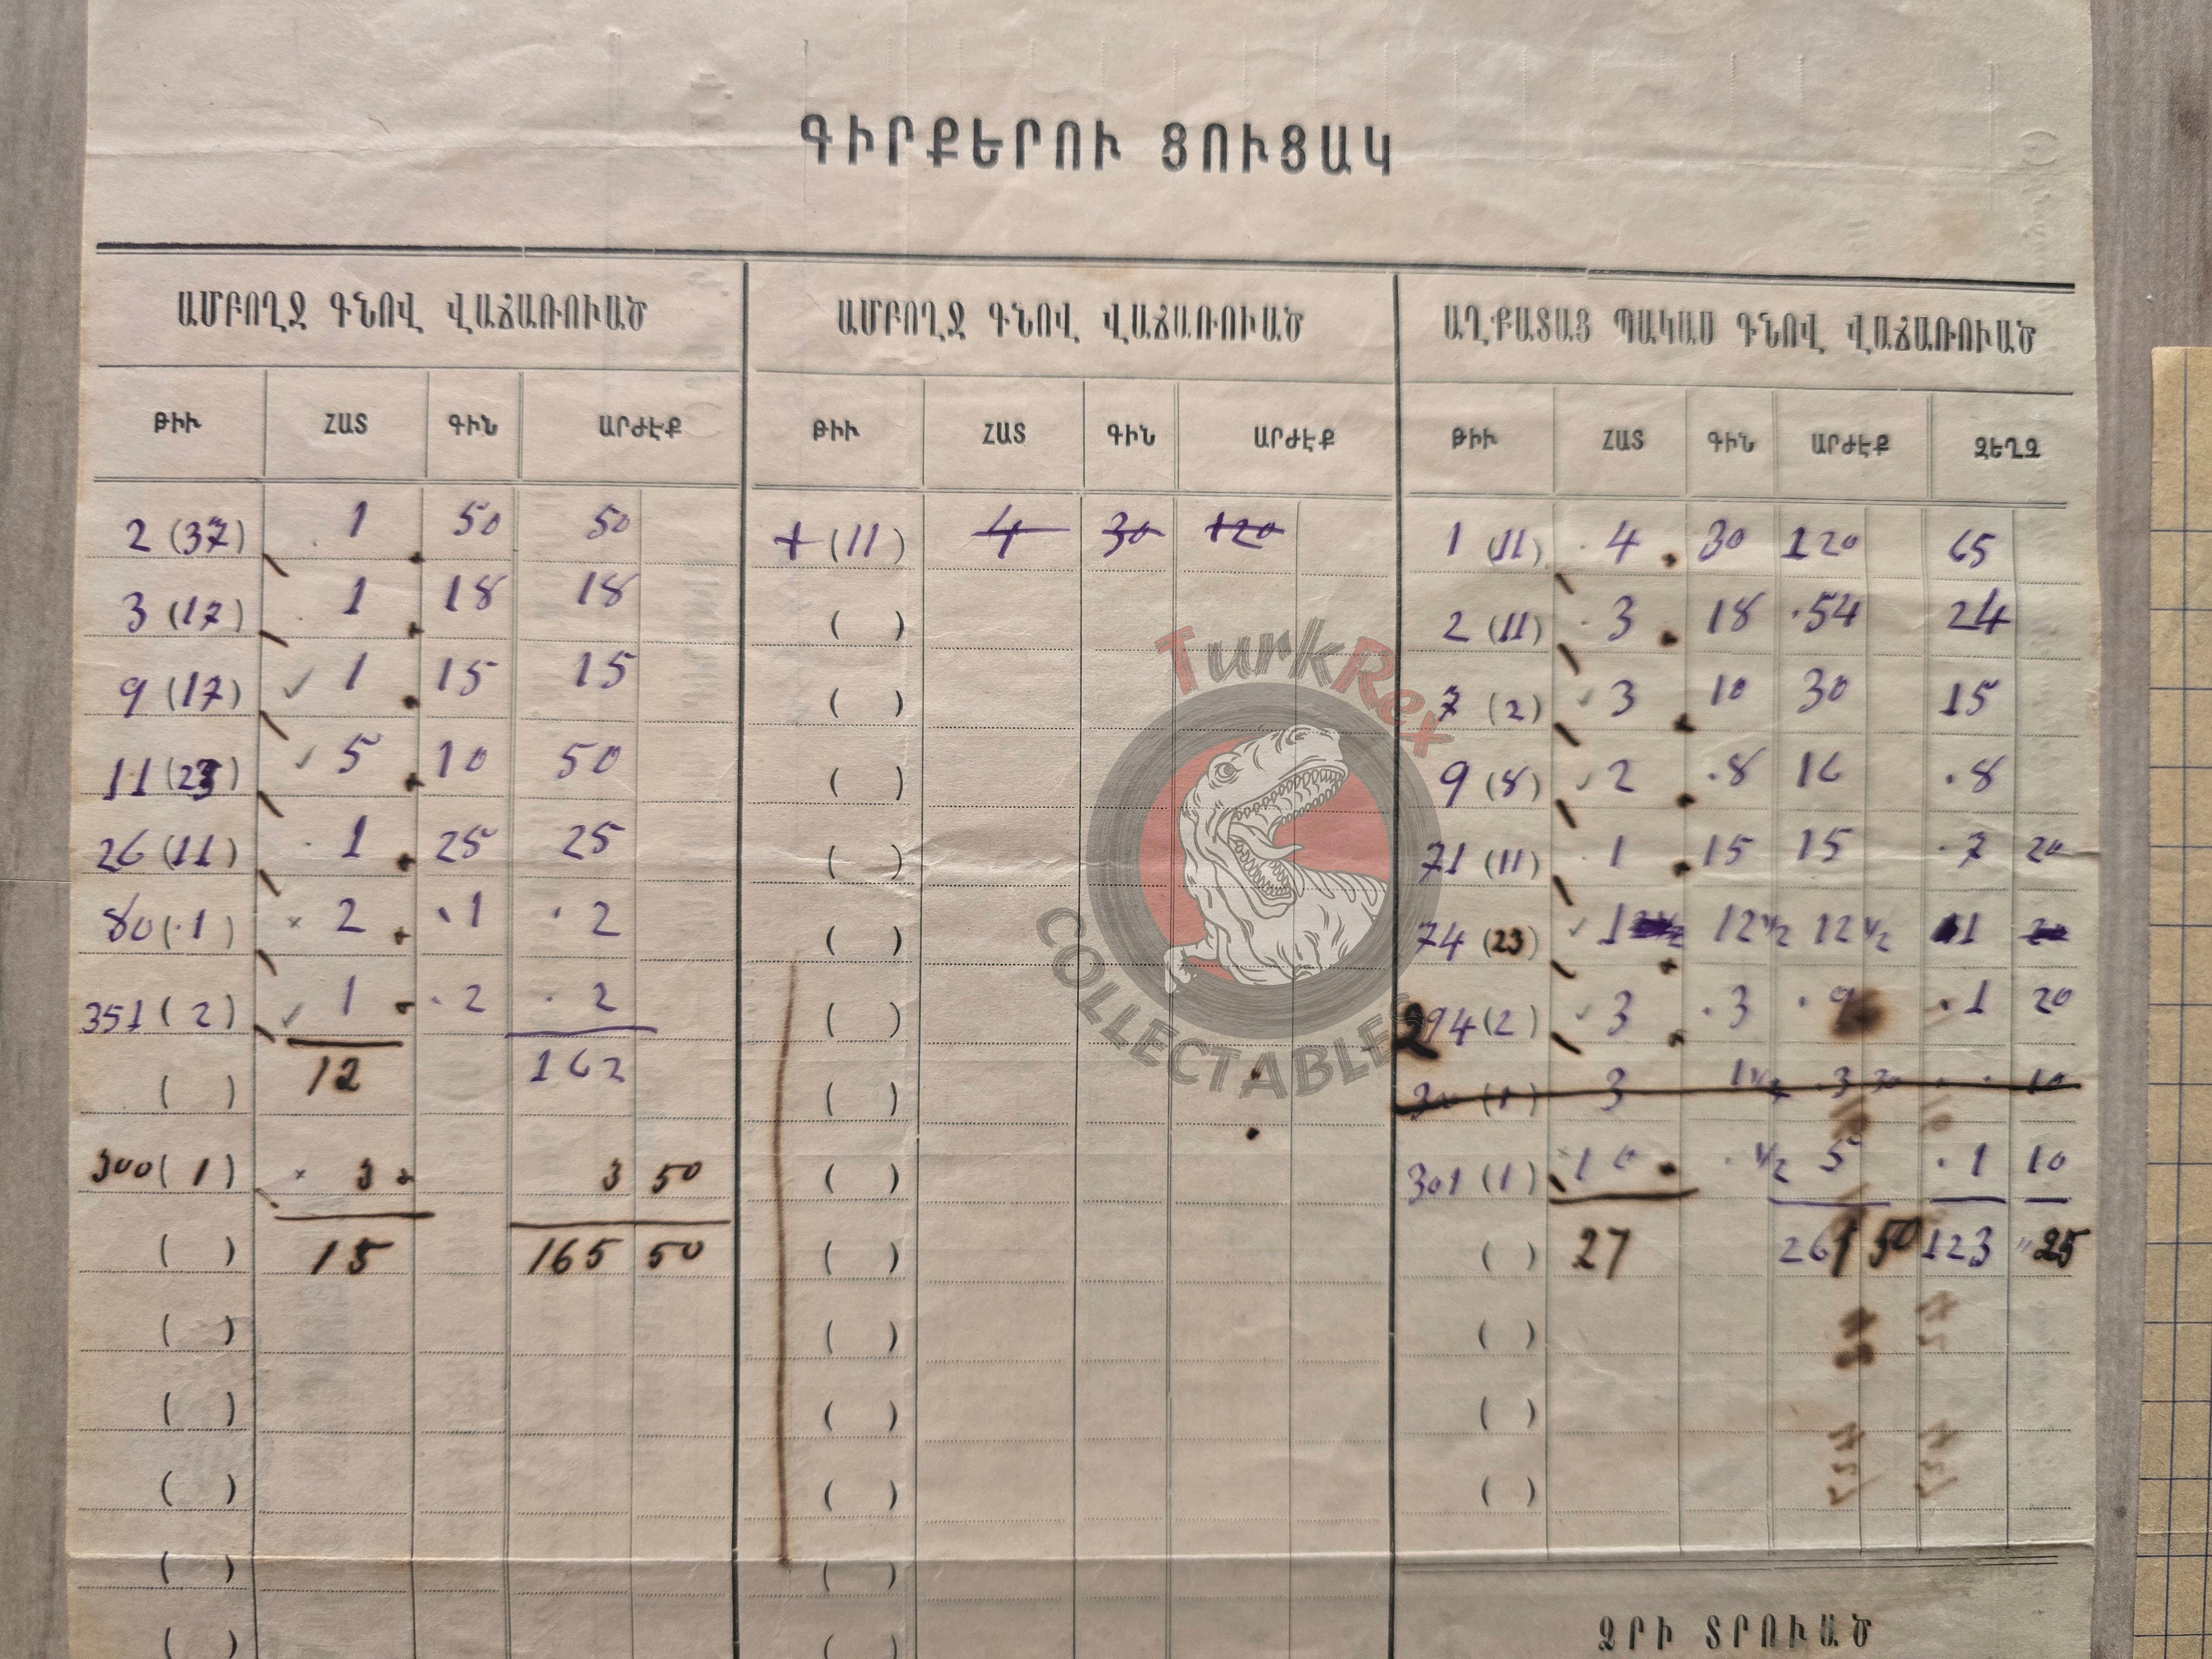 ԳԻՐՔԵՐՈՒ ՑՈՒՑԱԿ
ԱՄԲՈՂՋ ԳՆՈՎ ՎԱՃԱՌՈՒԱԾ
ԹԻՒ ՀԱՏ ԳԻՆ ԱՐԺԷՔ
2 (37) 1 50 50
3 (17) 1 18 18
9 (17) ✓ 1 15 15
11 (23) ✓ 5 10 50
26 (11) 1 25 25
80 (1) × 2 1 2
351 (2) ✓ 1 2 2
( ) 12 162
300 (1) × 3 3 50
( ) 15 165 50
( )
( )
( )
( )
( )
ԱՄԲՈՂՋ ԳՆՈՎ ՎԱՃԱՌՈՒԱԾ
ԹԻՒ ՀԱՏ ԳԻՆ ԱՐԺԷՔ
1 (11) 4 30 120
( )
( )
( )
( )
( )
( )
( )
( )
( )
( )
( )
( )
( )
( )
ԱՂՔԱՏԱՑ ՊԱԿԱՍ ԳՆՈՎ ՎԱՃԱՌՈՒԱԾ
ԹԻՒ ՀԱՏ ԳԻՆ ԱՐԺԷՔ ԶԵՂՉ
1 (11) 4 30 120 65
2 (11) 3 18 54 24
7 (2) ✓ 3 10 30 15
9 (8) ✓ 2 8 16 8
71 (11) 1 15 15 7 20
74 (23) ✓ 1 12 1/2 12 1/2 1
294 (2) ✓ 3 3 9 1 20
3 3 30 10
301 (1) 10 1/2 5 1 10
( ) 27 261 50 123 25
( )
( )
( )
ՁՐԻ ՏՐՈՒԱԾ
TurkRex
COLLECTABLES